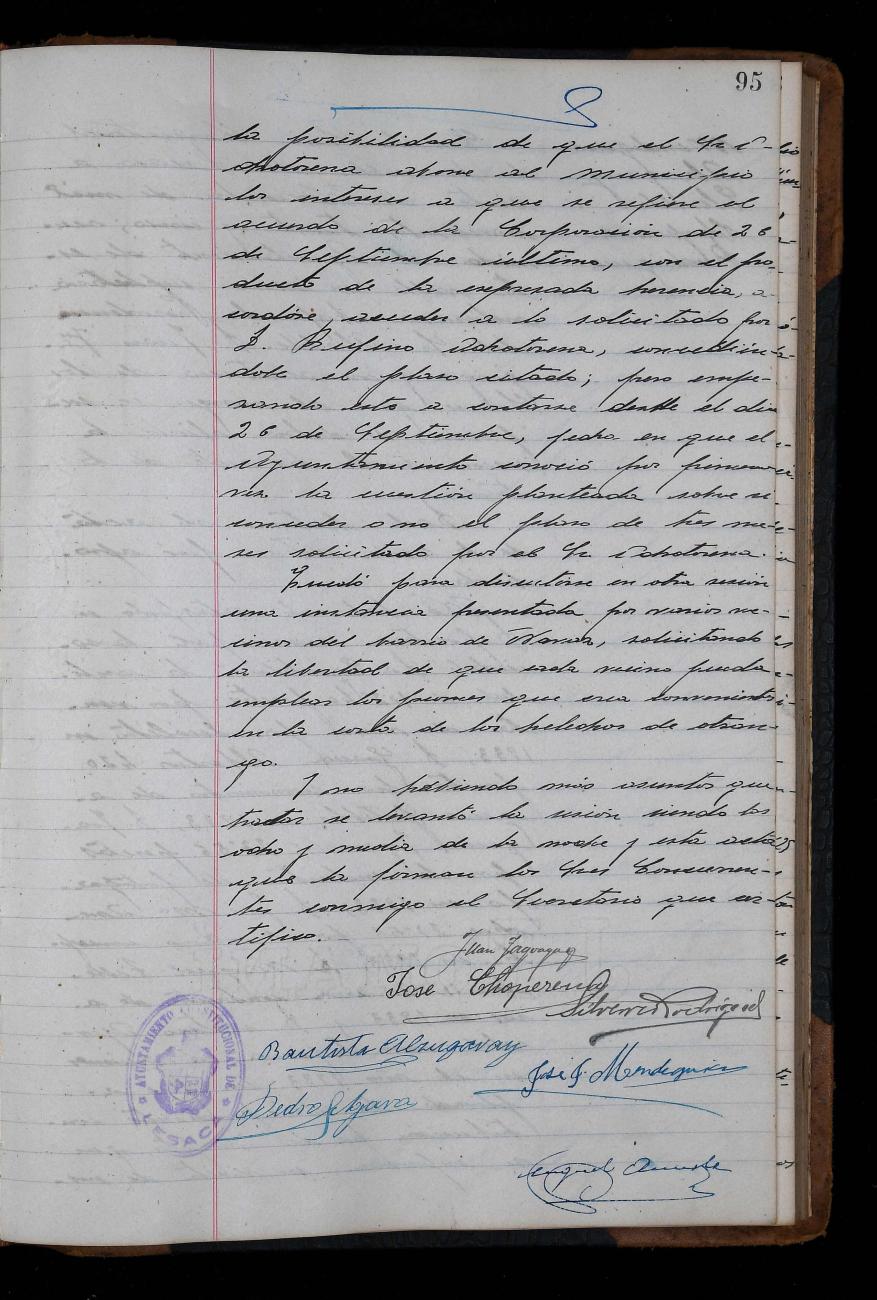 95
la posibilidad de que el Sr. I-
chotorena abone al Municipio
los intereses a que se refiere el
acuerdo de la Corporación de 26
de Septiembre último, con el pro-
ducto de la expresada herencia, a-
cordóse, acceder a lo solicitado por
D. Rufino Ochotorena, concedién-
dole el plazo citado; pero empe-
zando este a contarse desde el dia
26 de Septiembre, fecha en que el
Ayuntamiento conoció por primera
vez la cuestión planteada sobre si
conceder o no el plazo de tres me-
ses solicitado por el Sr. Ochotorena.
Quedó para discutirse en otra sesión
una instancia presentada por varios ve-
cinos del barrio de Navaz, solicitando
la libertad de que cada vecino pueda
emplear los peones que crea conveniente
en la corta de los helechos de otoan-
go.
Y no habiendo más asuntos que
tratar se levantó la sesión siendo las
ocho y media de la noche y esta acta
que la firman los Sres Concurren-
tes conmigo el Secretario que cer-
tifico.
Juan
Jose Choperena
Silverio Rodriguez
Bautista Alzugaray
José J. Mendiguia
Pedro
AYUNTAMIENTO CONSTITUCIONAL DE LESACA